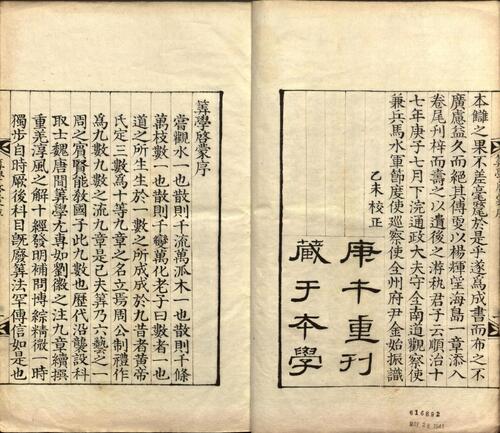 本讎之果不差毫釐於是乎遂爲成書而布之不
廣慮益久而絶其傳更以楊輝望海島一章添入
卷尾刋梓而壽之以遺後之游執君子云順治十
七年庚子七月下浣通政大夫守全南道觀察使
兼兵馬水軍節度使巡察使全州府尹金始振識
乙未校正
庚午重刊
藏于本學
616892
筭學啓蒙序
嘗觀水一也散則千流萬派木一也散則千條
萬枝數一也散則千變萬化老子曰數者一也
道之所生生於一數之所成成於九昔者黃帝
氏定三數爲十等九章之名立焉周公制禮作
爲九數九數之流九章是已夫筭乃六藝之一
周之賓賢能敎國子此九數也歷代沿襲設科
取士魏唐間筭學尤專如劉徽之注九章續撰
重差淳風之解十經發明補問博綜精微一時
獨步自時厥後科目旣廢筭法罕傳信如是也